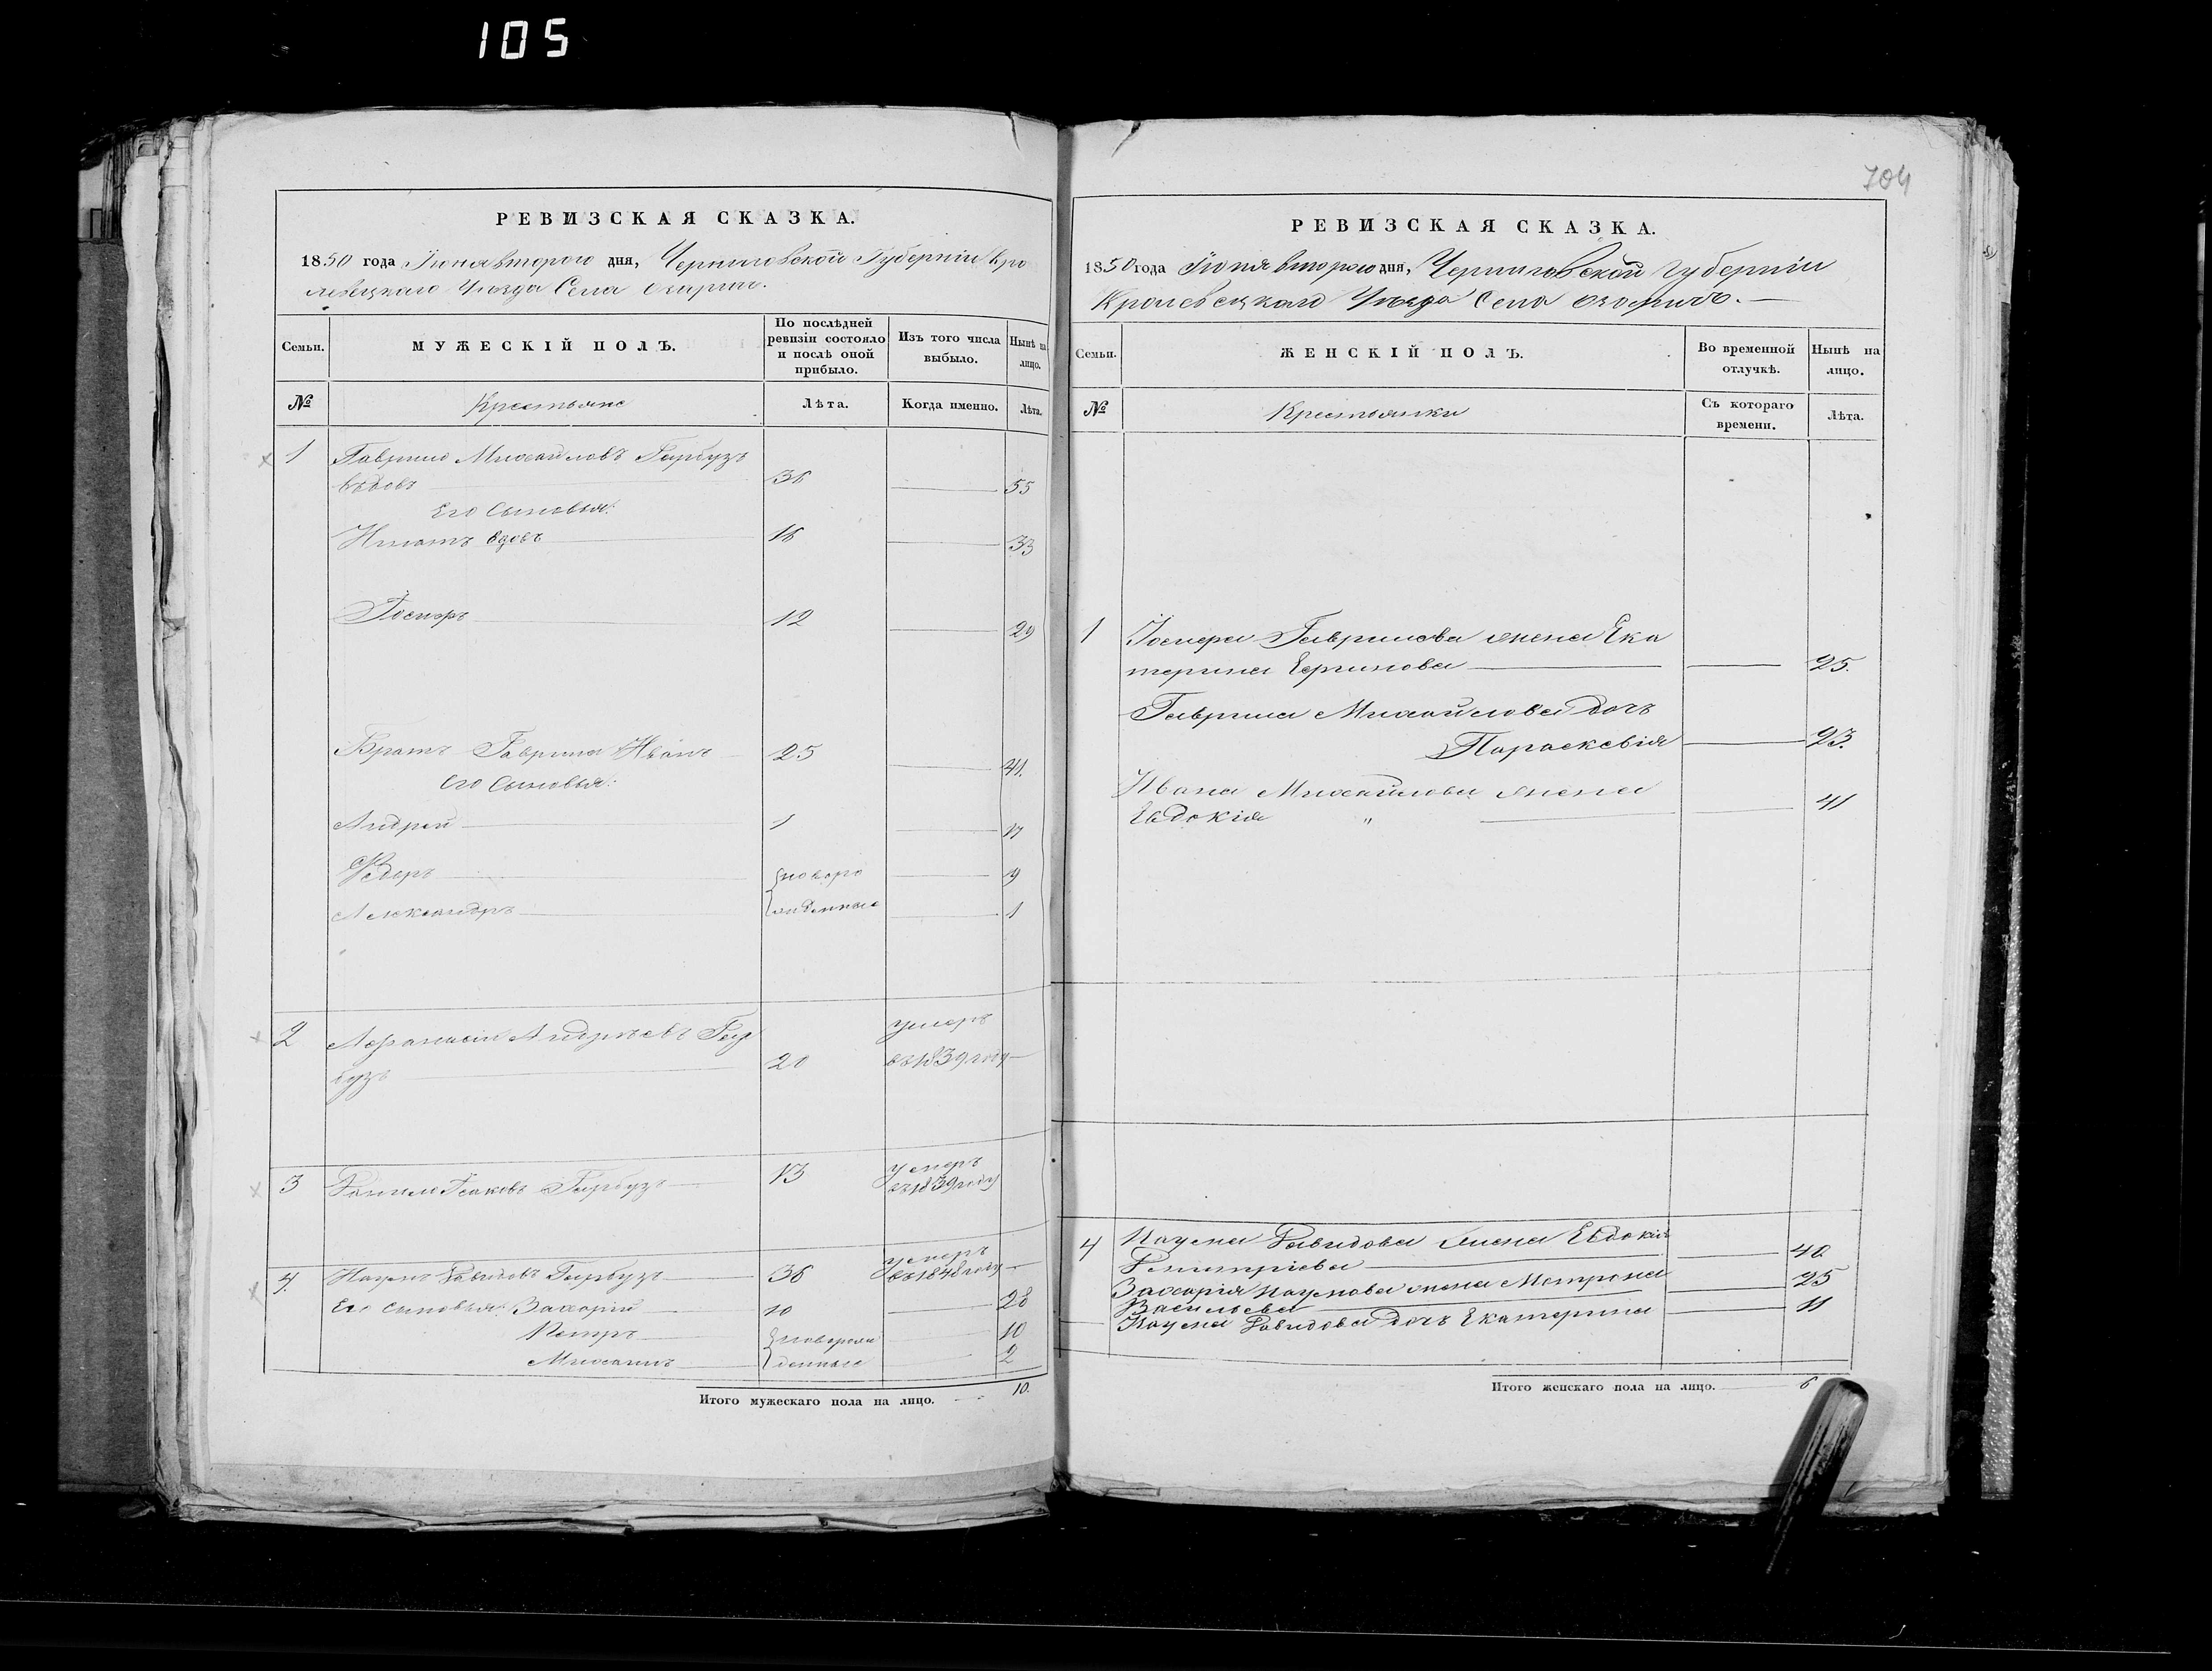 105
704
РЕВИЗСКАЯ СКАЗКА.
1850 года Іюня второго дня, Черниговской Губерніи Кро
левецкаго Уѣзда Села
Семьи. МУЖЕСКІЙ ПОЛЪ. По послѣдней ревизіи состояло и послѣ оной прибыло. Изъ того числа выбыло. Нынѣ на лицо.
№ Крестьяне Лѣта. Когда именно. Лѣта.
1 Гаврило Михайловъ Гарбузъ
вдовъ 36 55
Его Сыновья:
Игнатъ вдовъ 16 33
Іосифъ 12 29
Братъ Гаврила Иванъ 25 41.
Его Сыновья:
Андрей 1 17
Федоръ новоро 9
Александръ жденные 1
2 Афанасій Андреевъ Гар умеръ
бузъ 20 въ 1839 году
3 Данило Исаковъ Гарбузъ 13 умеръ
въ 1839 году
4. Наумъ Давидовъ Гарбузъ 36 умеръ въ 1848 году
Его сыновья: Захарій 10 28
Петръ новорож 10
Михаилъ денные 2
Итого мужескаго пола на лицо. 10.
РЕВИЗСКАЯ СКАЗКА.
1850 года Іюня второго дня, Черниговской Губерніи
Кролевецкаго Уѣзда Села
Семьи. ЖЕНСКІЙ ПОЛЪ. Во временной отлучкѣ. Нынѣ на лицо.
№ Крестьянки Съ котораго времени. Лѣта.
1 Іосифа Гаврилова жена Ека
терина 25.
Гаврила Михайлова дочь
Параскевія 23.
Ивана Михайлова жена
Евдокія " 41
4 Наума Давидова жена Евдокія
Димитріева 46
Захарія Наумова жена Матрона 25
Васильева
Наума Давидова дочь Екатерина 11
Итого женскаго пола на лицо. 6